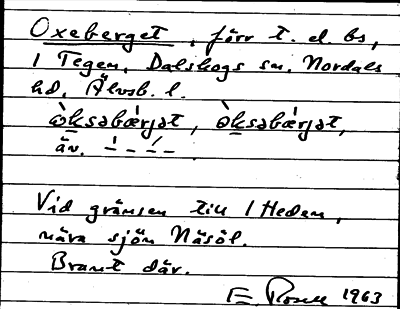 Oxeberget, förr t. el. bs,
1 Tegen, Dalskogs sn. Nordals
hd, Älvsb. l.
òksəbærjət, òksəbærjət,
äv. –́–́–
Vid gränsen till 1 Heden,
nära sjön Näsöl.
Brant där.
E. Rosell 1963